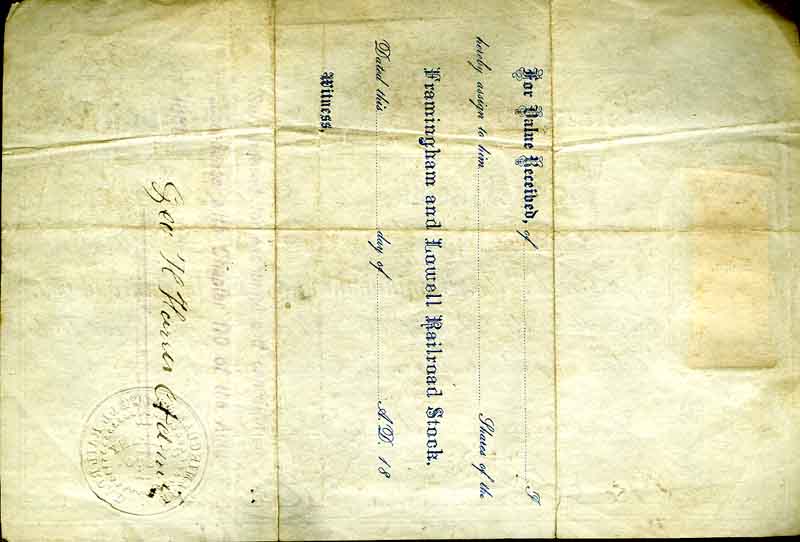 For Value Received, of I
hereby assign to him Shares of the
Framingham and Lowell Railroad Stock.
Dated this day of A.D. 18
Witness,
Geo H